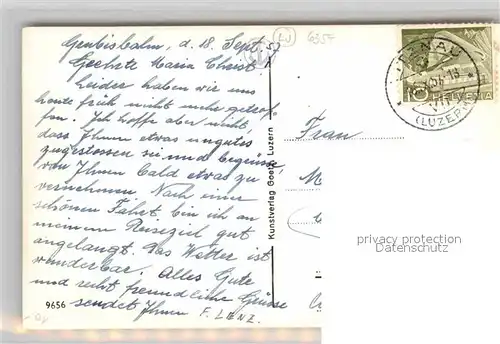 Gerbisbahn, d. 18. Sept.
Geehrte Maria Christ!
Leider haben wir uns
heute früh nicht mehr getrof-
fen. Ich hoffe aber nicht,
dass Ihnen etwas ungutes
zugestossen sei und begrüsse
von Ihnen bald etwas zu
vernehmen. Nach einer
schönen Fahrt bin ich an
meinem Reiseziel gut
angelangt. Das Wetter ist
wunderbar. Alles Gute
und recht freundliche Grüsse
sendet Ihnen F. LIENZ.
9656
Kunstverlag Goetz, Luzern
LU
6357
Frau
HELVETIA
10
(LUZERN)
privacy protection
www.ansichtskarten-center.de